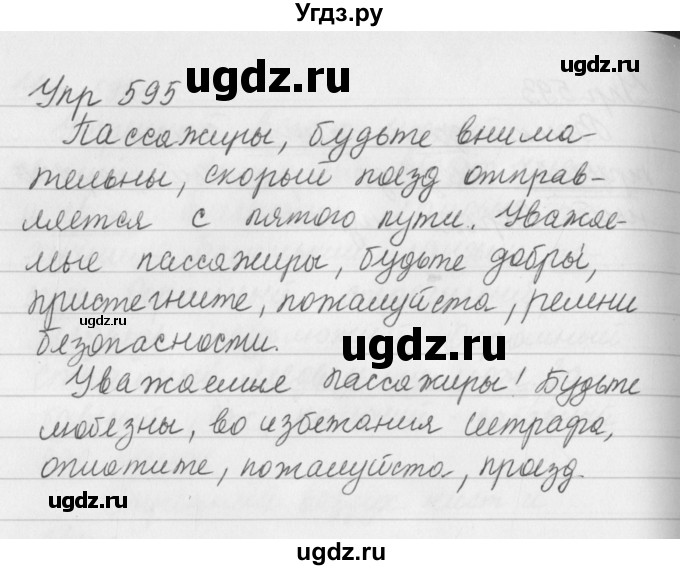 Угдз.ру
ugdz.ru
Упр 595
Пассажиры, будьте внима-
тельны, скорый поезд отправ-
ляется с пятого пути. Уважае-
мые пассажиры, будьте добры,
пристегните, пожалуйста, ремни
ugdz.ru
безопасности.
ugdz.ru
Уважаемые пассажиры! Будьте
любезны, во избежания штрафа,
оплатите, пожалуйста, проезд.
ugdz.ru
ugdz.ru